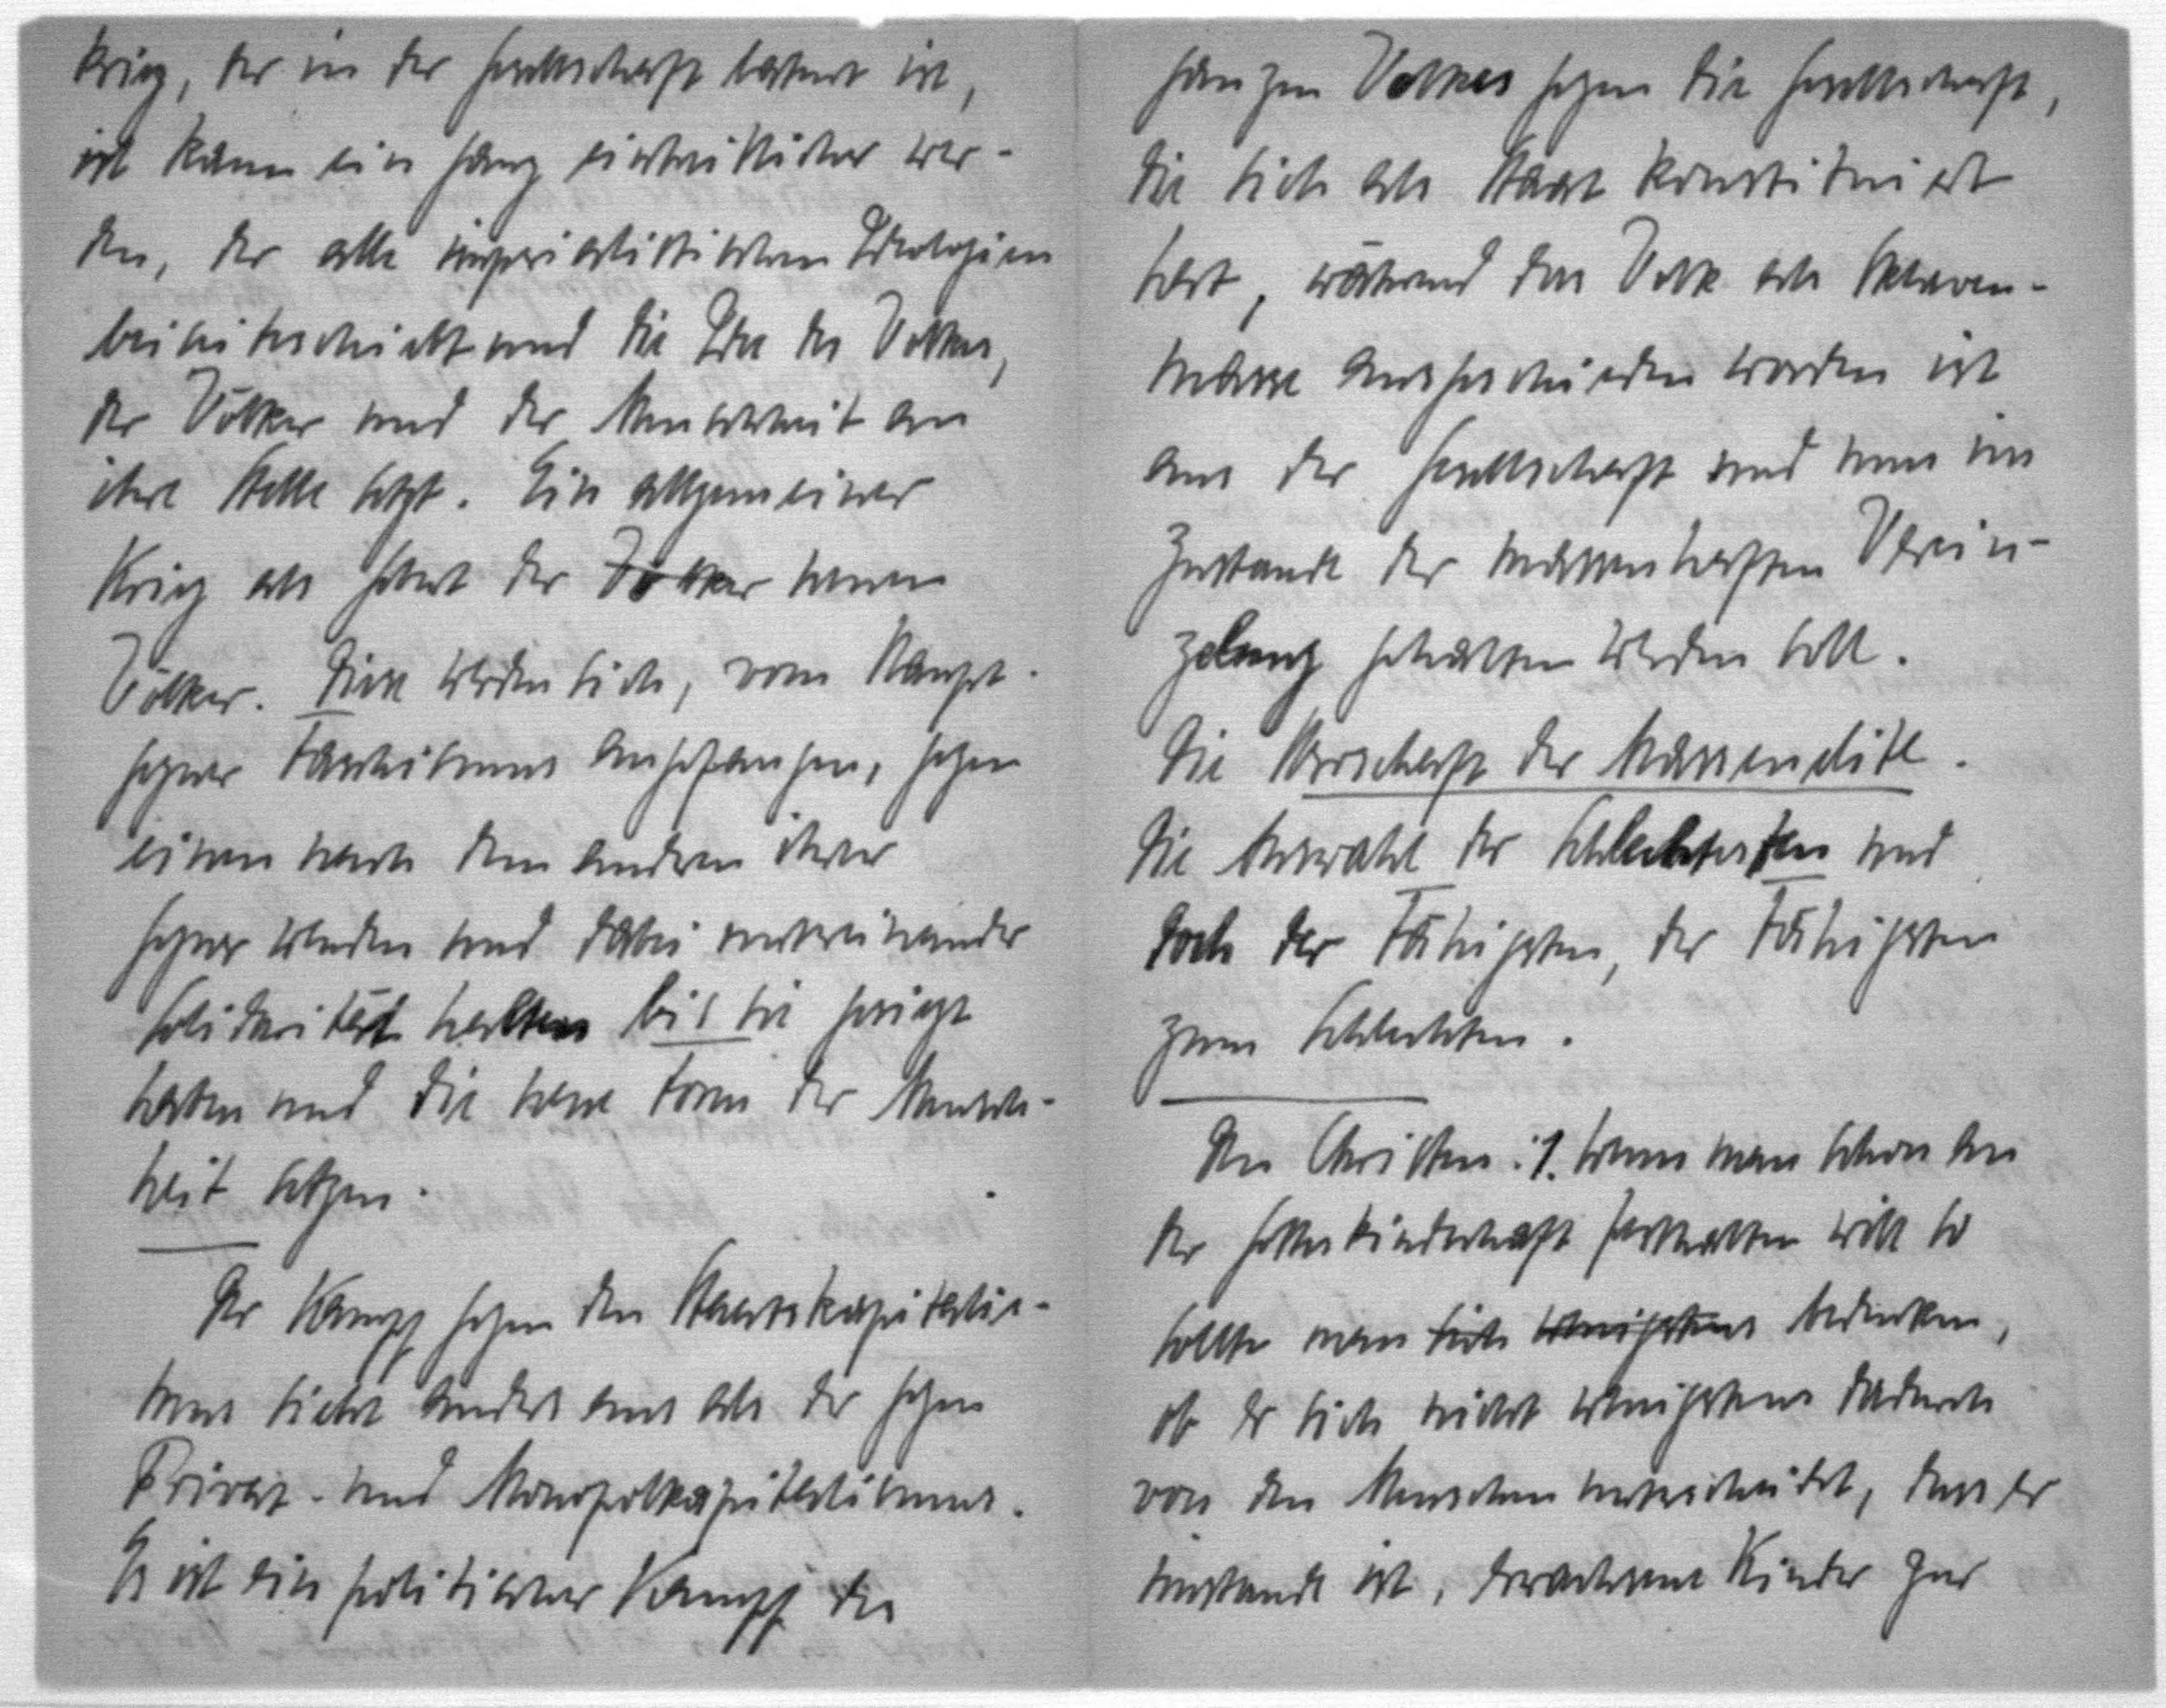 Krieg, der in der Gesellschaft latent ist,
ist kann ein ganz einheitlicher wer-
den, der alle imperialistischen Ideologien
beiseiteschiebt und die Idee des Volkes,
der Völker und der Menschheit an
ihre Stelle setzt. Ein allgemeiner
Krieg als Geburt der Völker neuen
Völker. Diese werden sich, vom Haupt-
gegner Faschismus angefangen, gegen
einen nach dem anderen ihrer
Gegner wenden und dabei untereinander
Solidarität halten bis sie gesiegt
haben und die neue Form der Mensch-
heit setzen.
Der Kampf gegen den Staatskapitalis-
mus sieht anders aus als der gegen
Privat- und Monopolkapitalismus.
Es ist ein politischer Kampf des
ganzen Volkes gegen die Gesellschaft,
die sich als Staat konstituiert
hat, während das Volk als Sklaven-
masse ausgeschieden worden ist
aus der Gesellschaft und nun im
Zustande der massenhaften Verein-
zelung gehalten werden soll.
Die Herrschaft der Massenelite.
Die Auswahl der Schlechtesten und
doch der Fähigsten, der Fähigsten
zum Schlechten.
Den Christen: 1. Wenn man schon an
der Gotteskindschaft festhalten will so
sollte man sich wenigstens bedenken,
ob er sich nicht wenigstens dadurch
von den Menschen unterscheidet, dass er
imstande ist, erwachsene Kinder zur